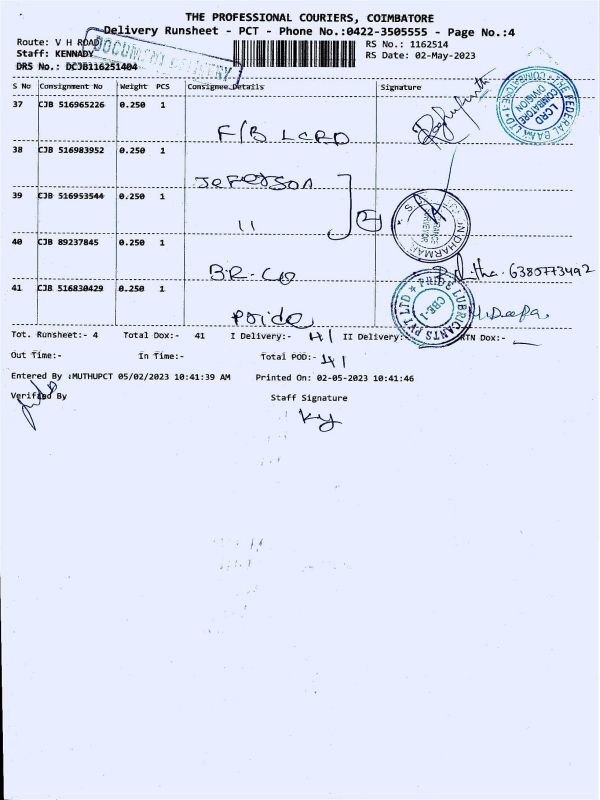 THE PROFESSIONAL COURIERS, COIMBATORE
Delivery Runsheet - PCT - Phone No.:0422-3505555 - Page No.:4
Route: V H ROAD
RS No.: 1162514
Staff: KENNADY
RS Date: 02-May-2023
DRS No.: DCJB116251404
DOCUMENT DELIVERY
S No Consignment No Weight PCS Consignee Details Signature
37 CJB 516965226 0.250 1
F/B LCRD
THE FEDERAL BANK LTD COIMBATORE-1
LCRD COIMBATORE DIVISION
38 CJB 516983952 0.250 1
Jeferson
39 CJB 516953544 0.250 1
11
2
40 CJB 89237845 0.250 1
BR-Co
6380773492
41 CJB 516830429 0.250 1
Pride
PRIDE LUBRICANTS PVT LTD
CBE-1
Deepa
Tot. Runsheet:- 4 Total Dox:- 41 I Delivery:- 41 II Delivery:- RTN Dox:-
Out Time:- In Time:- Total POD:- 41
Entered By :MUTHUPCT 05/02/2023 10:41:39 AM Printed On: 02-05-2023 10:41:46
Verified By Staff Signature